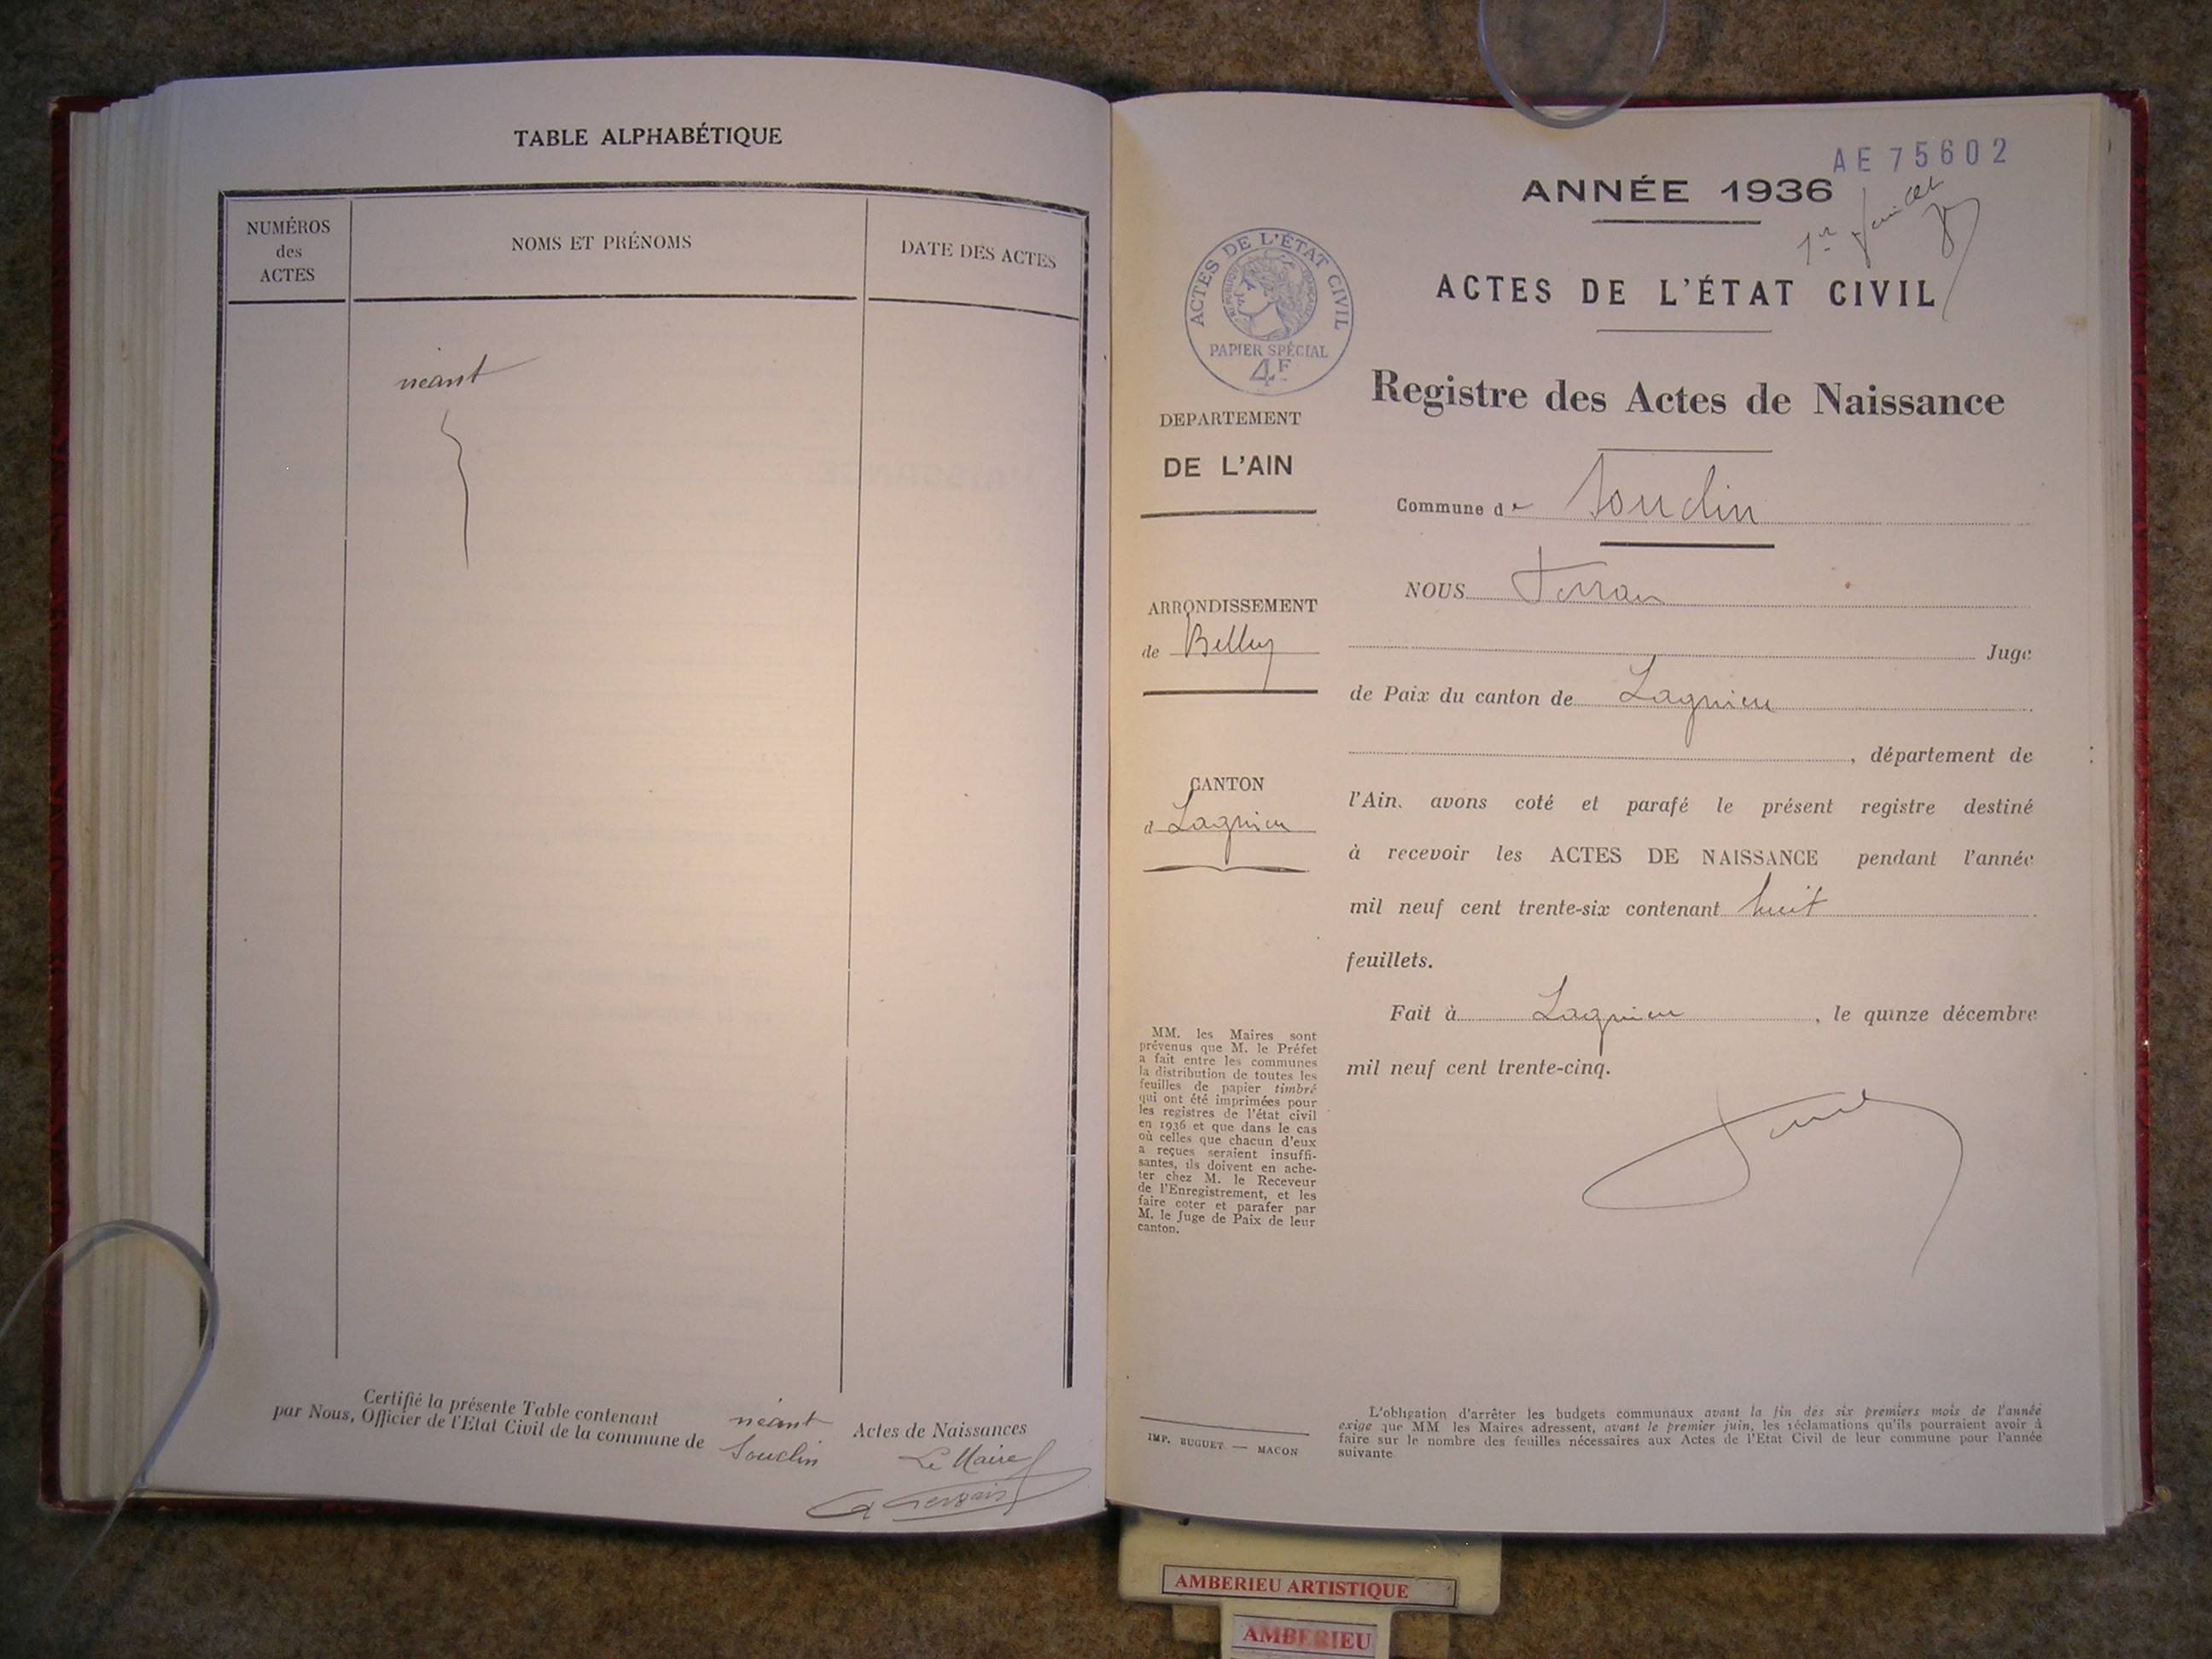 TABLE ALPHABÉTIQUE
NUMÉROS
des
ACTES
NOMS ET PRÉNOMS
DATE DES ACTES
néant
Certifié la présente Table contenant néant Actes de Naissances
par Nous, Officier de l'Etat Civil de la commune de Souclin
Le Maire
Gervais
AE 75602
ANNÉE 1936
1er feuillet
ACTES DE L'ÉTAT CIVIL
ACTES DE L'ÉTAT CIVIL
RÉPUBLIQUE FRANÇAISE
PAPIER SPÉCIAL
4F
Registre des Actes de Naissance
DEPARTEMENT
DE L'AIN
Commune de Souclin
ARRONDISSEMENT
de Belley
CANTON
d Lagnieu
NOUS Ferran
Juge
de Paix du canton de Lagnieu
, département de
l'Ain, avons coté et parafé le présent registre destiné
à recevoir les ACTES DE NAISSANCE pendant l'année
mil neuf cent trente-six contenant huit
feuillets.
Fait à Lagnieu, le quinze décembre
mil neuf cent trente-cinq.
MM. les Maires sont
prévenus que M. le Préfet
a fait entre les communes
la distribution de toutes les
feuilles de papier timbré
qui ont été imprimées pour
les registres de l'état civil
en 1936 et que dans le cas
où celles que chacun d'eux
a reçues seraient insuffi-
santes, ils doivent en ache-
ter chez M. le Receveur
de l'Enregistrement, et les
faire coter et parafer par
M. le Juge de Paix de leur
canton.
IMP. BUGUET — MACON
L'obligation d'arrêter les budgets communaux avant la fin des six premiers mois de l'année
exige que MM les Maires adressent, avant le premier juin, les réclamations qu'ils pourraient avoir à
faire sur le nombre des feuilles nécessaires aux Actes de l'Etat Civil de leur commune pour l'année
suivante
AMBERIEU ARTISTIQUE
AMBERIEU